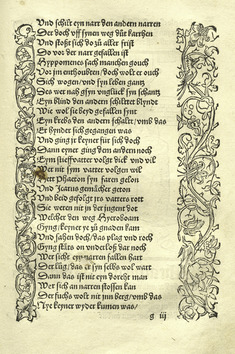 Und schilt eyn narr den andern narren
Der doch vff synen weg důt karrhen
Und stoßt sich do zů aller frist
Do vor der narr gefallen ist
Hyppomenes sach manchen gouch
Vor jm enthoubten / doch wolt er ouch
Sich wogen / vnd syn leben gantz
Des wer nah gsyn vnglück syn schantz
Eyn blind den andern schiltet blyndt
Wie wol sie beyd gefallen synt
Eyn krebs den andern schalt / vmb das
Er hynder sich gegangen was
Und ging jr keyner für sich doch
Dann eyner ging dem andern noch
Eym stieffvatter volgt dick vnd vil
Wer nit sym vatter volgen wil
Hett Phaeton syn faren gelon
Und Icarus gemächer geton
Und beid gefolgt jrs vatters rott
Sie weren nit jn der jugent dot
Welcher den weg Hyeroboam
Gyng / keyner ye zů gnaden kam
Und sahen doch / das plag vnd roch
Gyng stäts on vnderloß dar noch
Wer sicht eyn narren fallen hart
Der lůg / das er syn selbs wol wart
Dann das ist nit eyn dorecht man
Wer sich an narren stossen kan
Der fuchs wolt nit jnn berg / vmb das
Nye keyner wyder kumen was /
g iij